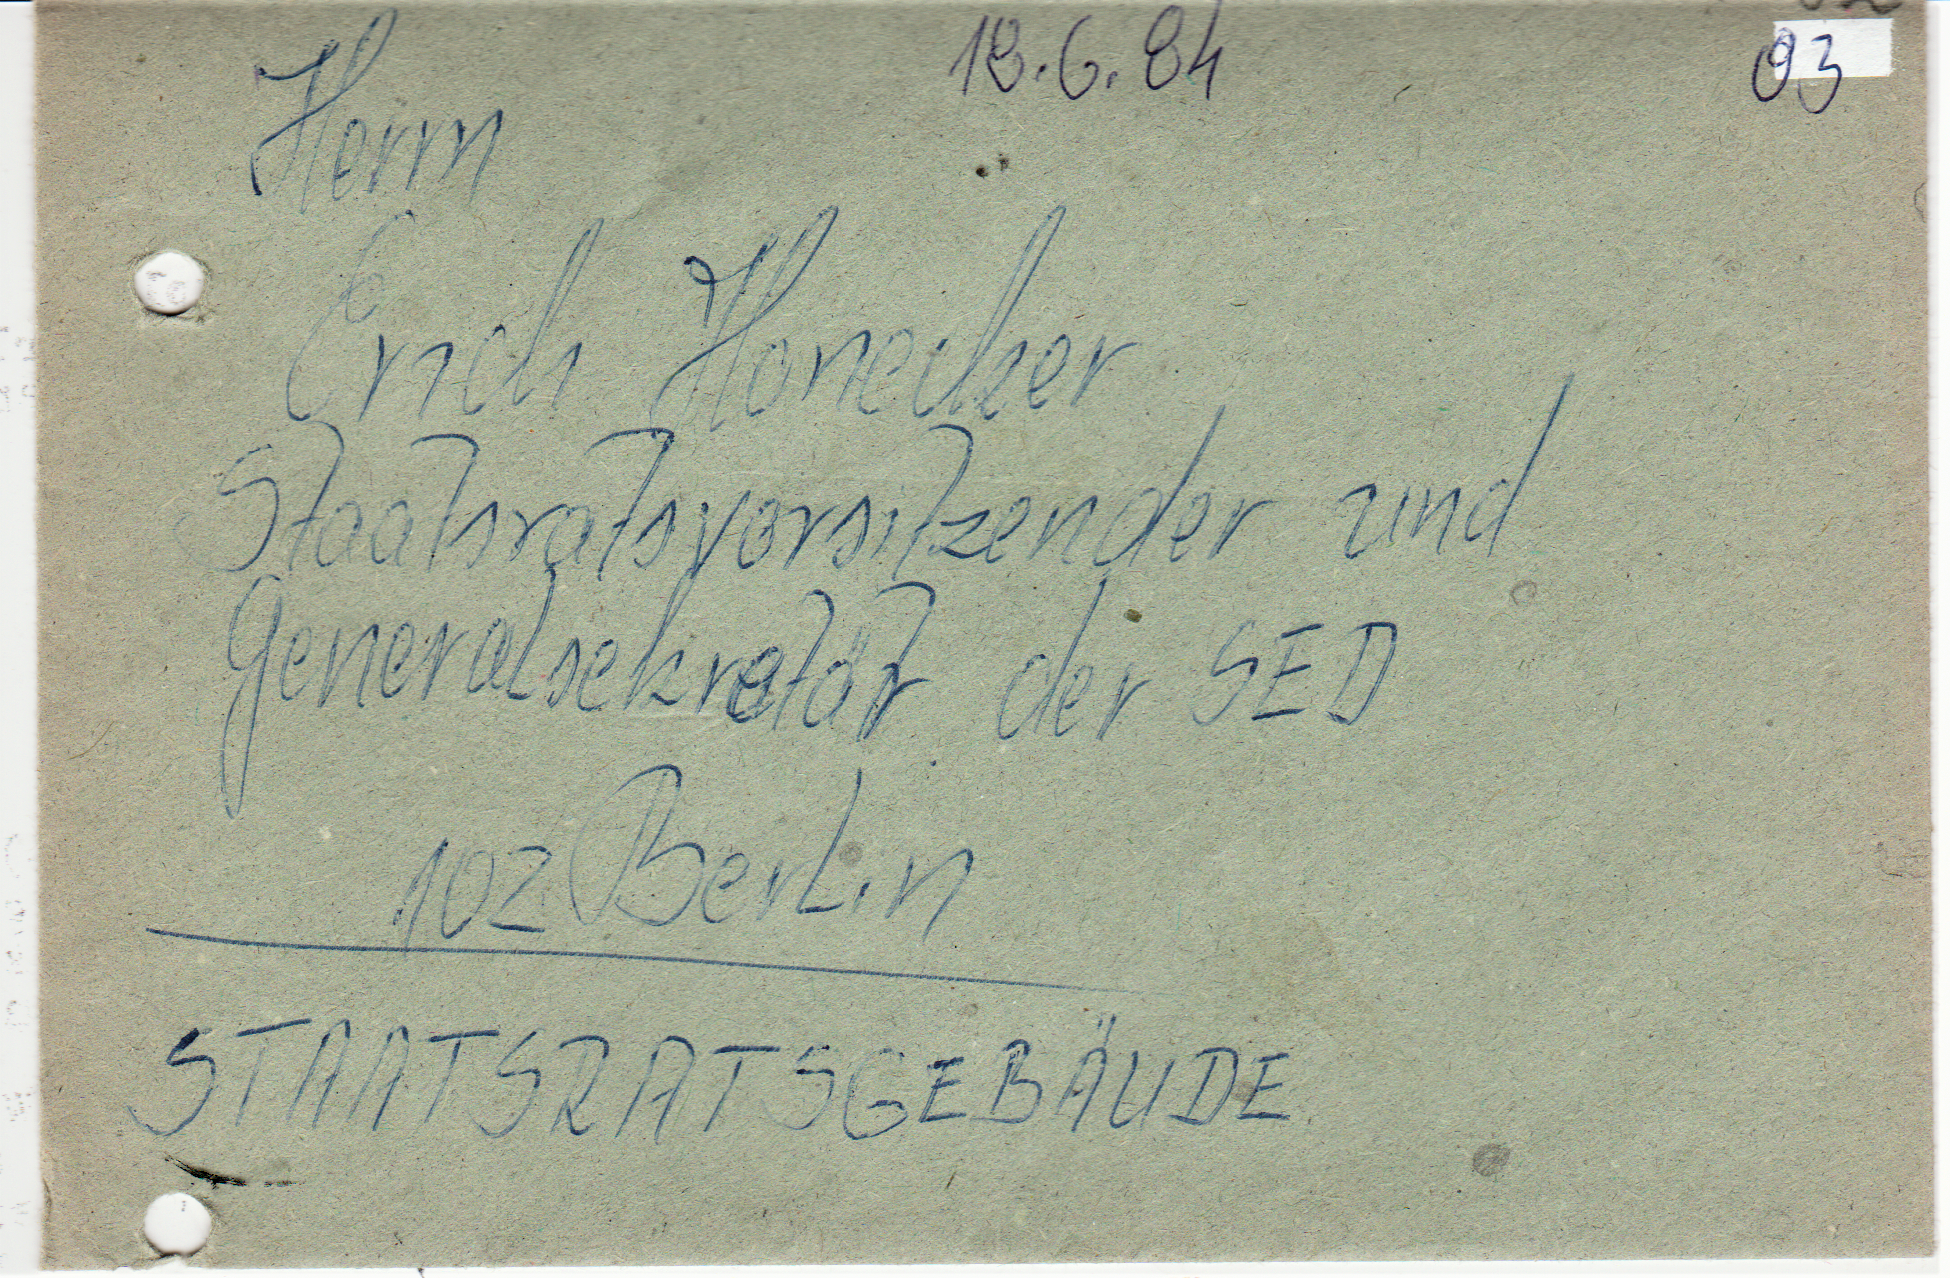 18.6.84
93
Herrn
Erich Honecker
Staatsratsvorsitzender und
Generalsekretär der SED
102 Berlin
STAATSRATSGEBÄUDE